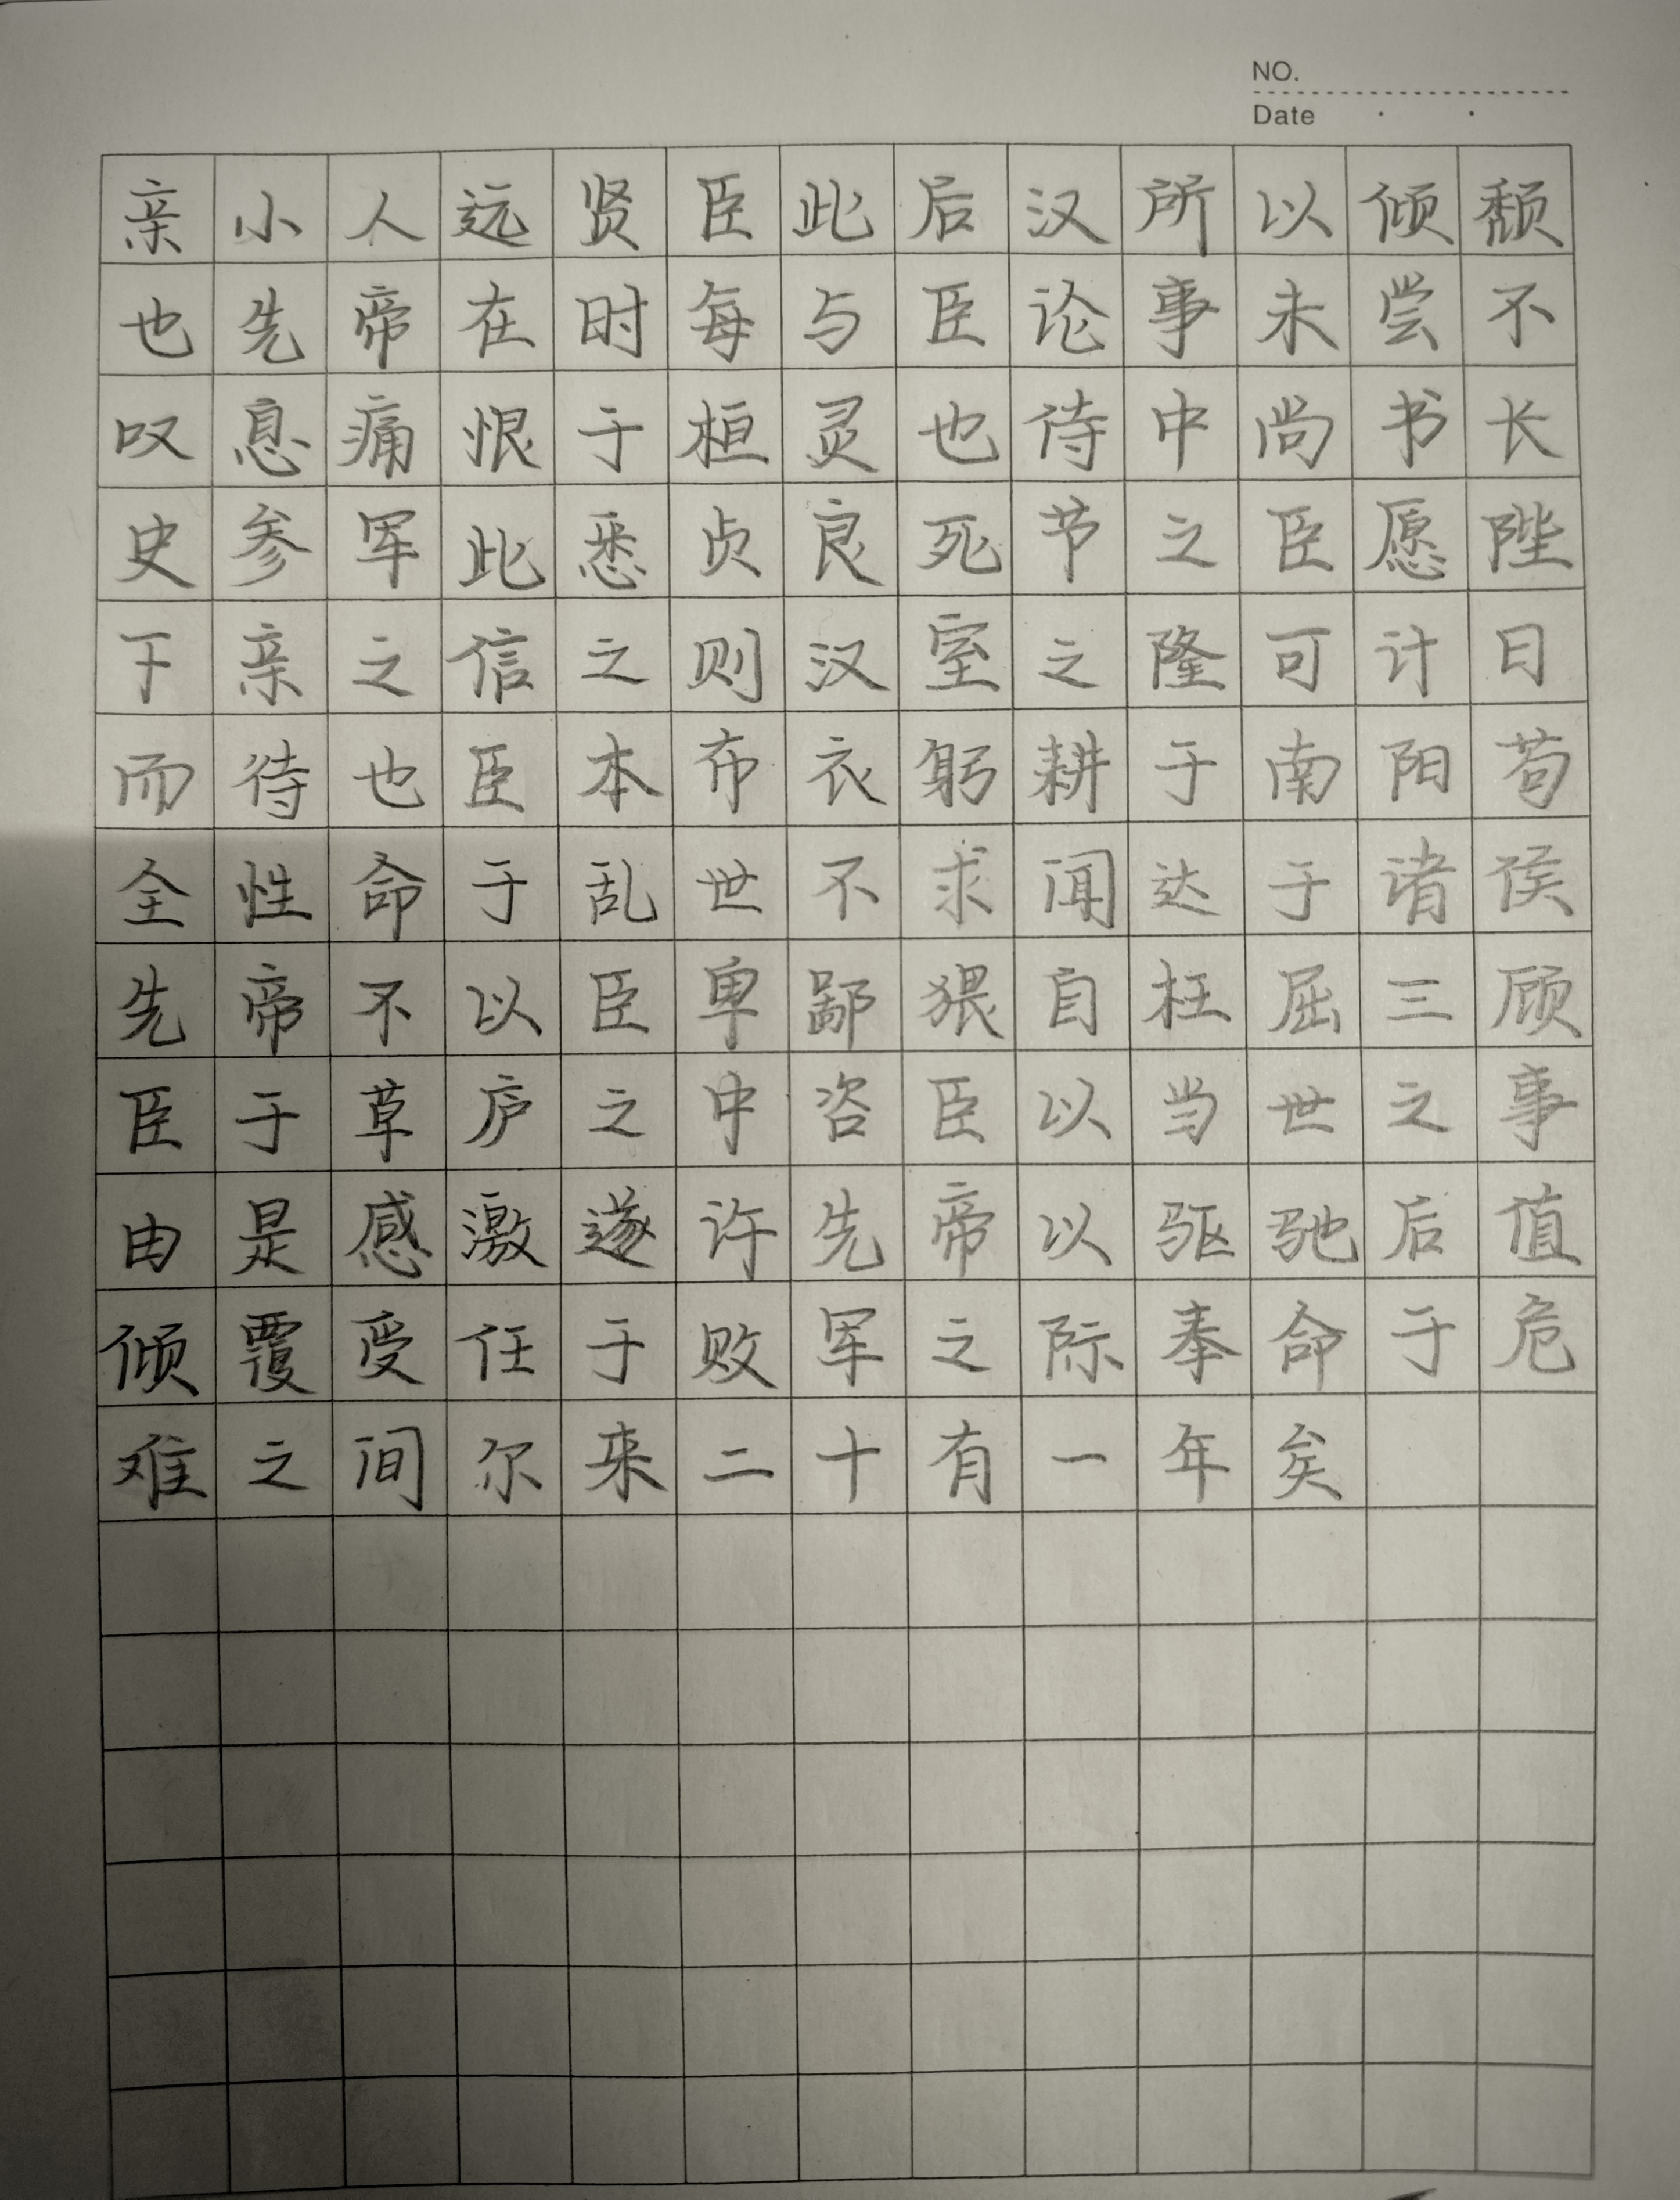 NO.
Date
亲小人远贤臣此后汉所以倾颓
也先帝在时每与臣论事未尝不
叹息痛恨于桓灵也侍中尚书长
史参军此悉贞良死节之臣愿陛
下亲之信之则汉室之隆可计日
而待也臣本布衣躬耕于南阳苟
全性命于乱世不求闻达于诸侯
先帝不以臣卑鄙猥自枉屈三顾
臣于草庐之中咨臣以当世之事
由是感激遂许先帝以驱驰后值
倾覆受任于败军之际奉命于危
难之间尔来二十有一年矣